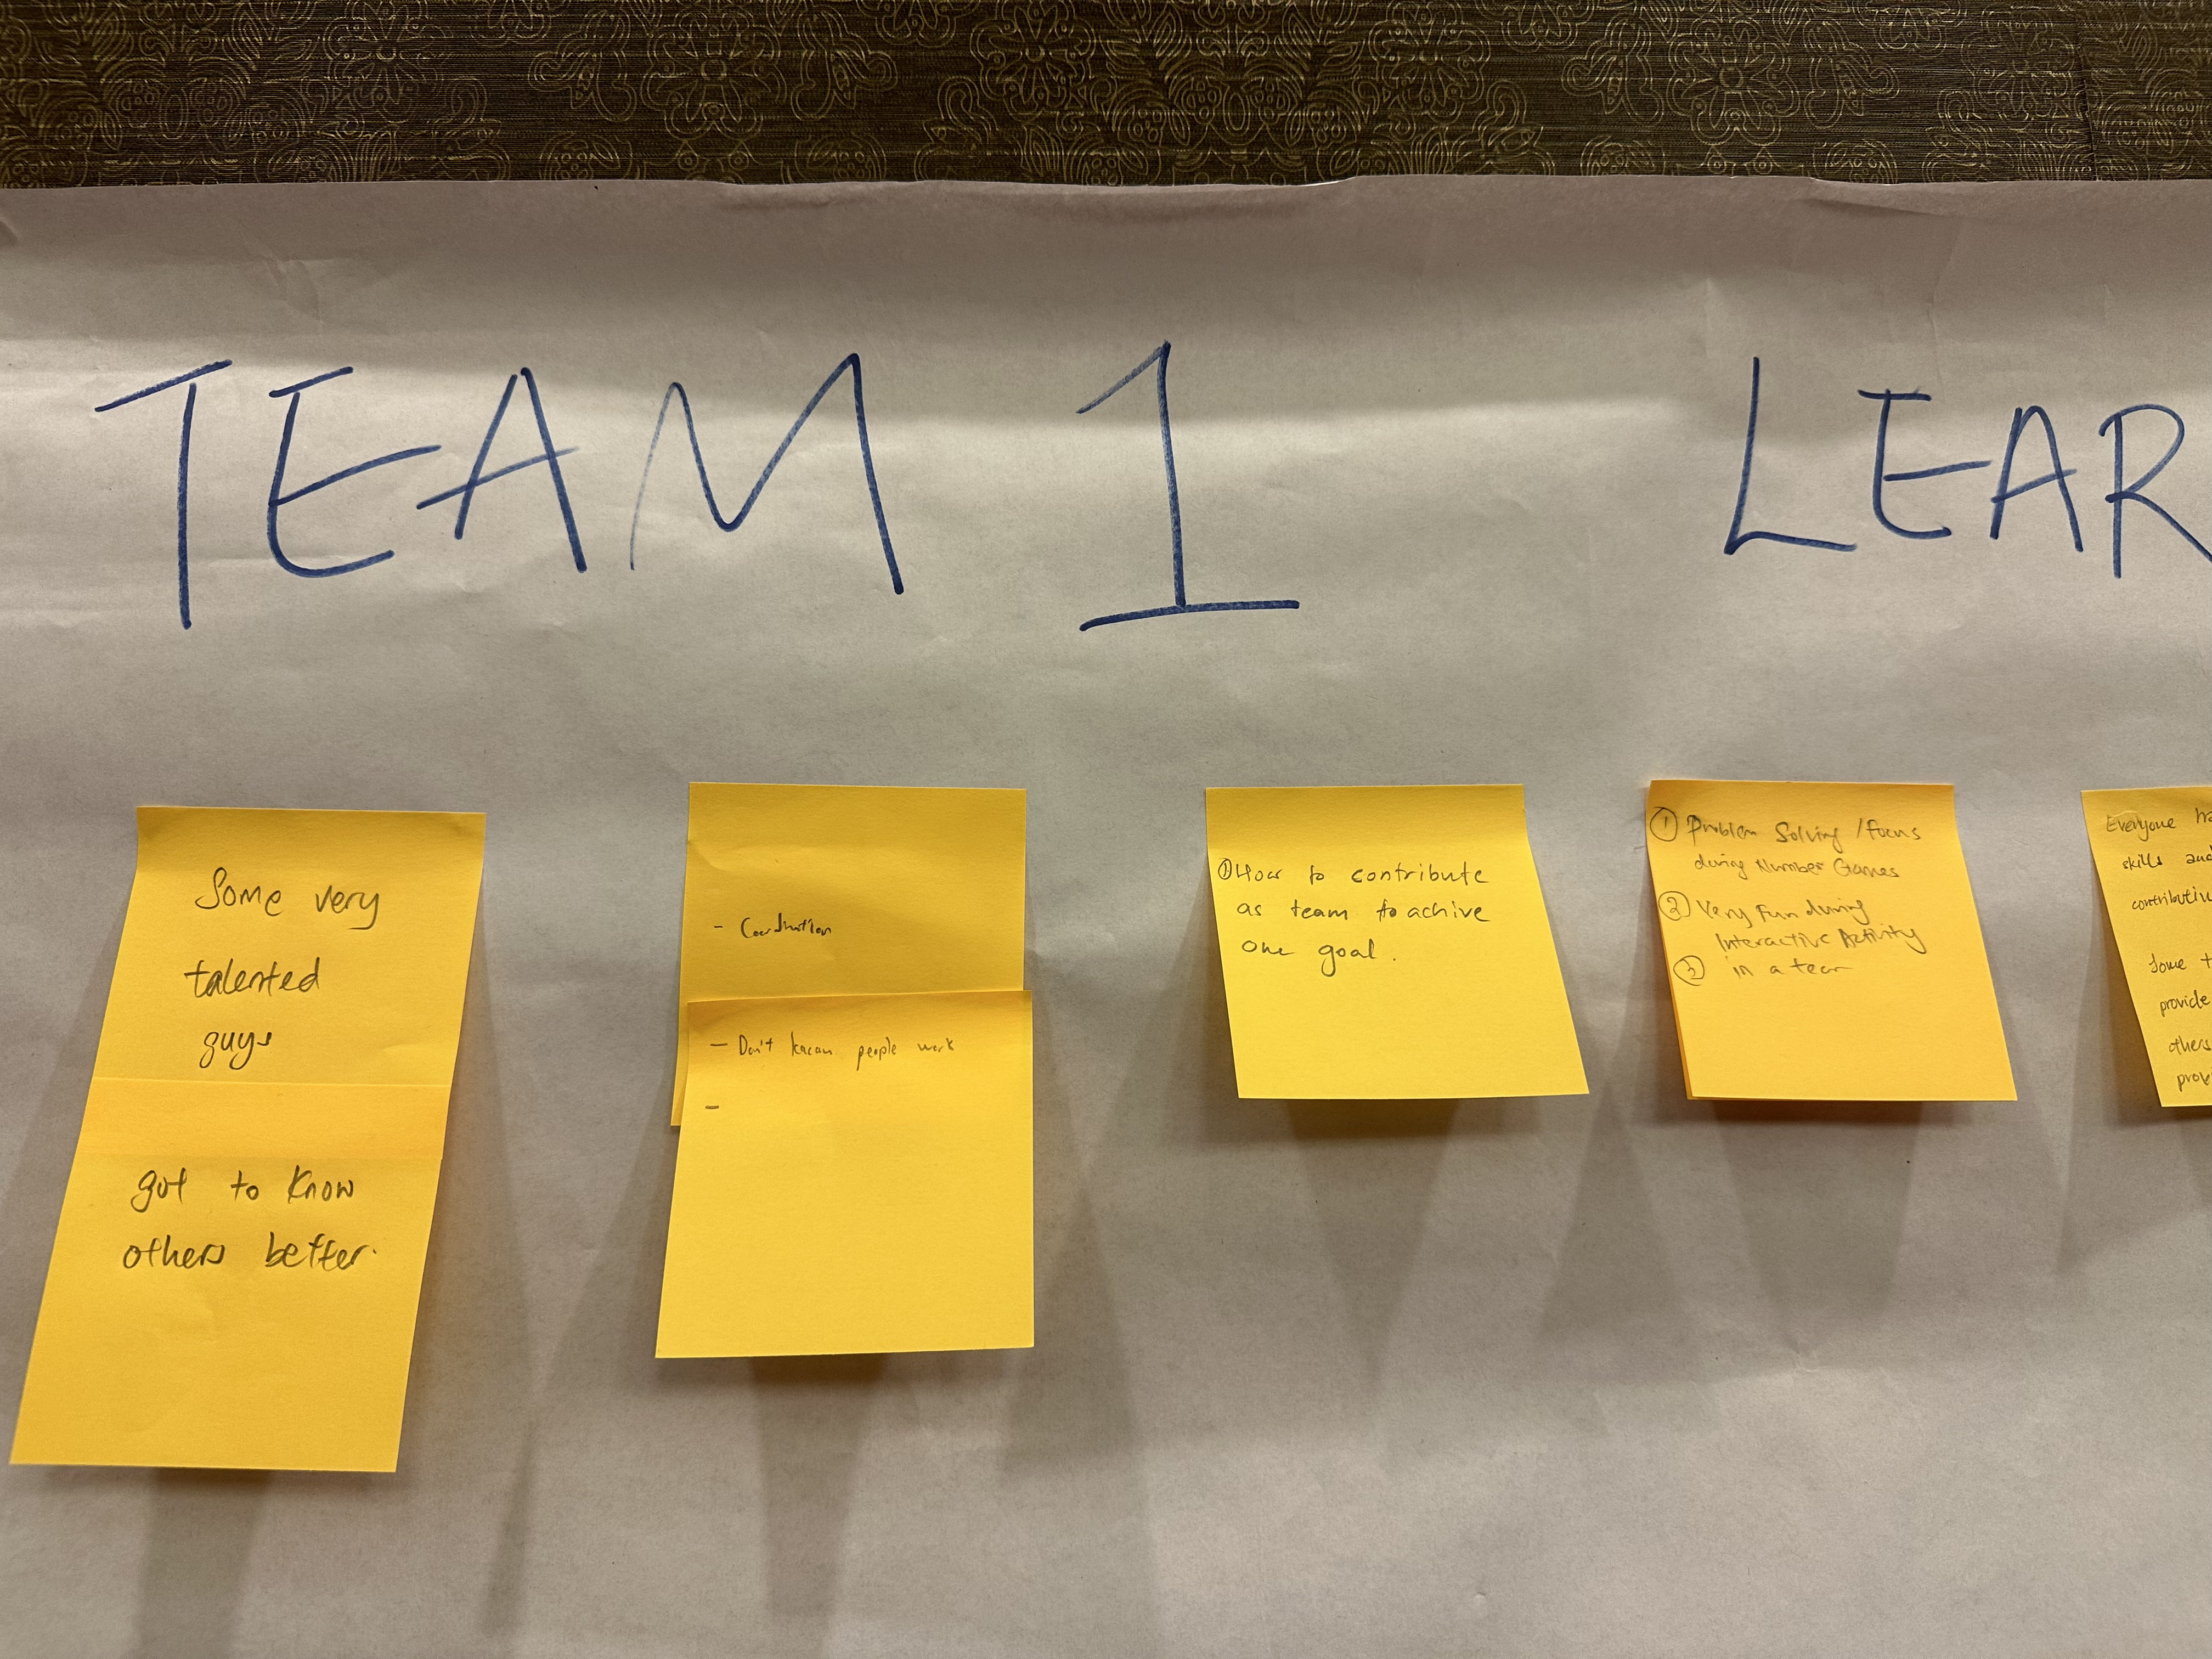 TEAM 1 LEAR
Some very
talented
guys
got to know
others better.
- Coordination
- Don't people work
-
① How to contribute
as team to achive
one goal.
① Problem Solving / focus
during Number Games
② Very fun during
Interactive Activity
③ in a team
Everyone ha
skills and
contributiv
Some t
provide
others
provi